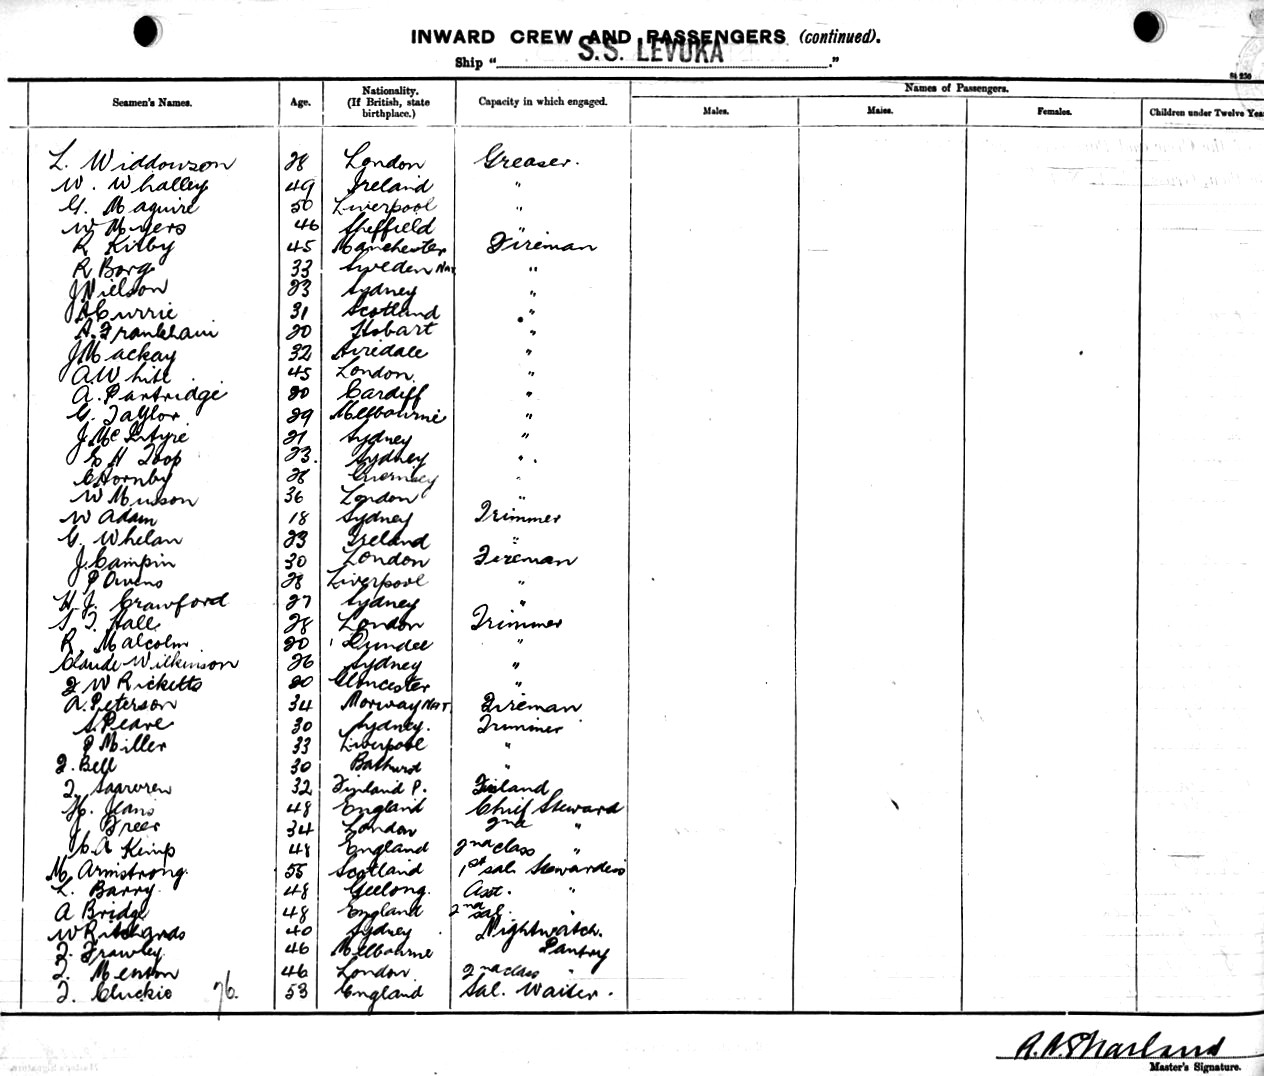 INWARD CREW AND PASSENGERS (continued).
Ship "S.S. LEVUKA."
Seamen's Names. Age. Nationality. (If British, state birthplace.) Capacity in which engaged. Names of Passengers.
Males. Males. Females. Children under Twelve Yea
L. Widdowson 28 London Greaser.
W. Whalley 49 Ireland "
G. Maguire 50 Liverpool "
W Myers 46 Sheffield "
R Kilby 45 Manchester Fireman
R Borg 33 Sweden Nat. "
J Nielson 23 Sydney "
A Currie 31 Scotland "
A. Frankham 20 Hobart "
J Mackay 32 Airedale "
A White 45 London "
A. Partridge 20 Cardiff "
G. Taylor 29 Melbourne "
J McIntyre 21 Sydney "
E H Toop 23. Sydney "
C Hornby 28 Guernsey "
W Munson 36 London "
W Adam 18 Sydney Trimmer
G. Whelan 23 Ireland "
J. Campin 30 London Fireman
P Owens 28 Liverpool "
H. J. Crawford 27 Sydney "
S. T. Hall 28 London Trimmer
R. Malcolm 20 Dundee "
Claude Wilkinson 26 Sydney "
F W Ricketts 20 Gloucester "
A. Peterson 34 Norway Nat. Fireman
S. Peare 30 Sydney. Trimmer
P Miller 33 Liverpool "
F. Bell 30 Bathurst "
32 Finland P. Finland
H. Jeans 48 England Chief Steward
J. Freer 34 London 2nd "
C A Kemp 48 England 2nd class "
M Armstrong. 55 Scotland 1st sal. Stewardess
L. Barry 48 Geelong. Asst. "
A Bridge 48 England 2nd sal. "
W Richards 40 Sydney Nightwatch.
F. Frawley 46 Melbourne Pantry
F. Menton 46 London 2nd class "
F. Cluckie 76. 53 England Sal. Waiter.
Master's Signature.